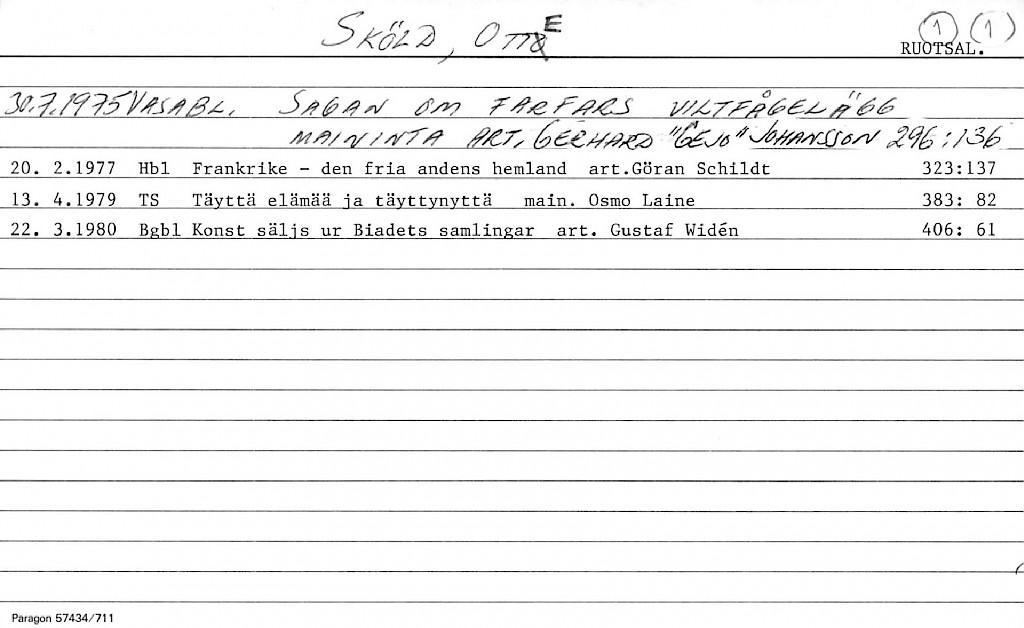 SKÖLD, OTTE (1) (1)
RUOTSAL.
30.7.1975 VASABL. SAGAN OM FARFARS VILTFÅGELÄGG
MAININTA ART. GERHARD "GEJO" JOHANSSON 296:136
20. 2.1977 Hbl Frankrike - den fria andens hemland art.Göran Schildt 323:137
13. 4.1979 TS Täyttä elämää ja täyttynyttä main. Osmo Laine 383: 82
22. 3.1980 Bgbl Konst säljs ur Biadets samlingar art. Gustaf Widén 406: 61
Paragon 57434/711